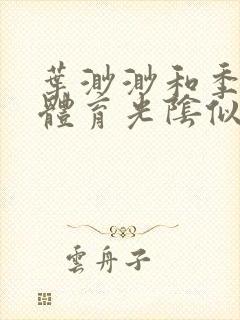 葉渺渺和季
體育光陰似
雲舟子